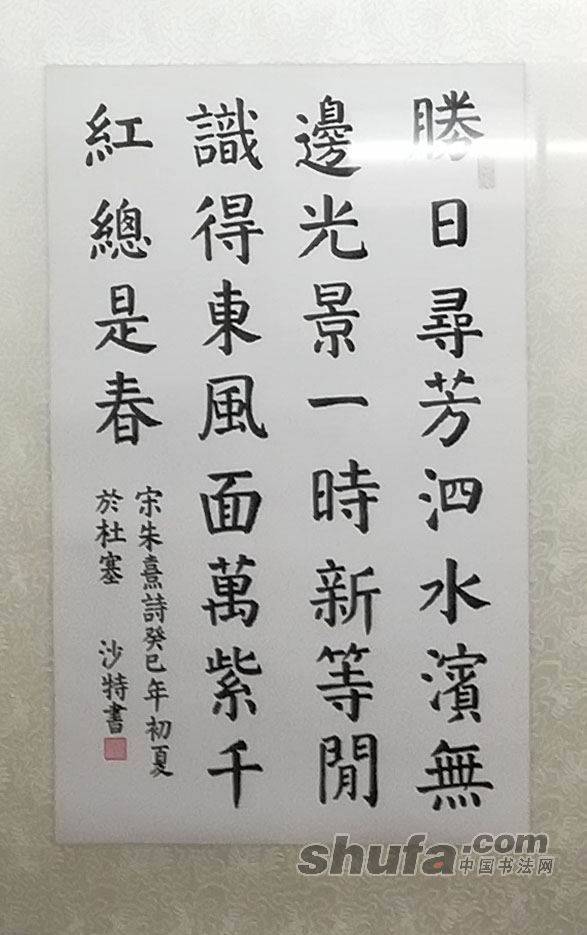 勝日尋芳泗水濱無
邊光景一時新等閒
識得東風面萬紫千
紅總是春
宋朱熹詩癸巳年初夏
於杜塞 沙特書
shufa.com
中国书法网